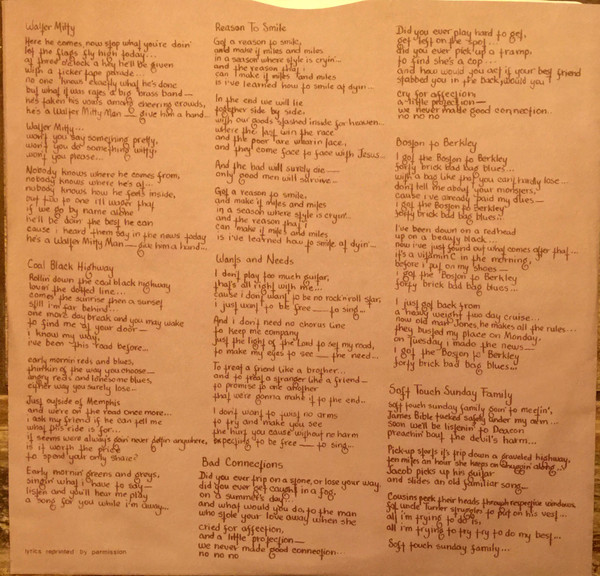 Walter Mitty
Here he comes, now stop what you're doin'
let the flags fly high today...
at three o'clock a key he'll be given
with a ticker tape parade...
no one knows exactly what he's done
but what if was rates a big brass band—
he's taken his vows among cheering crowds,
he's a Walter Mitty Man — give him a hand...
Walter Mitty...
won't you say something pretty,
won't you do something witty,
won't you please...
Nobody knows where he comes from,
nobody knows where he's at...
nobody knows how he feels inside,
but two to one I'll wager that
if we go by name alone
he'll be doin' the best he can
cause i heard them say in the news today
he's a Walter Mitty Man — give him a hand...
Coal Black Highway
Rollin down the coal black highway
lovin' the dotted line...
comes the sunrise then a sunset
still i'm far behind...
one more day break and you may wake
to find me at your door—
i know my way,
i've been this road before...
early mornin reds and blues,
thinkin of the way you choose—
angry reds and lonesome blues,
either way you surely lose—
Just outside of Memphis
and we're on the road once more...
i ask my friend if he can tell me
what this ride is for...
it seems we're always goin' never gettin anywhere,
is it worth the price
to spend your only share?
Early mornin' greens and greys,
singin' what i have to say—
listen and you'll hear me play
a song for you while i'm away...
lyrics reprinted by permission
Reason To Smile
Got a reason to smile,
and make it miles and miles
in a season where style is cryin'...
and the reason that i
can make it miles and miles
is i've learned how to smile at dyin'...
In the end we will lie
together side by side,
with our goods stashed inside for heaven...
where the last win the race
and the poor are wearin lace,
and they come face to face with Jesus...
And the bad will surely die—
only good men will survive—
Got a reason to smile,
and make it miles and miles
in a season where style is cryin'...
and the reason that i
can make it miles and miles
is i've learned how to smile at dyin'...
Wants and Needs
I don't play too much guitar,
that's all right with me...
cause i don't want to be no rock'n roll star,
i just want to be free — to sing...
And i don't need no chorus line
to keep me company
Just the light of the Lord to set my road,
to make my eyes to see — the need...
To treat a friend like a brother...
and to treat a stranger like a friend—
to promise to one another
that we're gonna make it to the end...
I don't want to twist no arms
to try and make you see
the hurt you cause without no harm
expecting to be free — to sing...
Bad Connections
Did you ever trip on a stone, or lose your way,
did you ever get caught in a fog,
on a summer's day?..
and what would you do, to the man
who stole your love away when she
cried for affection,
and a little projection—
we never made good connection...
no no no
Did you ever play hard to get,
get left on the spot...
did you ever pick up a tramp,
to find she's a cop...
and how would you act if your best friend
stabbed you in the back, would you
cry for affection
a little projection—
we never made good connection..
no no no
Boston to Berkley
I got the Boston to Berkley
forty brick bad bag blues...
with a bag like that you can't hardly lose—
don't tell me about your monsters,
cause i've already paid my dues—
i got the Boston to Berkley
forty brick bad bag blues...
I've been down on a redhead
up on a beauty black...
now i've just found out what comes after that—
it's a vitamin C in the morning,
before i put on my shoes—
i got the Boston to Berkley
forty brick bad bag blues...
I just got back from
a heavy weight two day cruise...
now old man Jones, he makes all the rules...
they busted my place on Monday,
on Tuesday i made the news—
I got the Boston to Berkley
forty brick bad bag blues...
Soft Touch Sunday Family
soft touch sunday family goin' to meetin',
James Bible tucked safely under my arm...
soon we'll be listenin' to Deacon
preachin' bout the devil's harm...
Pick-up starts it's trip down a graveled highway,
ten miles an hour she keeps on chuggin along...
Jacob picks up his guitar
and slides an old familiar song—
Cousins peek their heads through respective windows,
fat uncle Turner struggles to put on his vest...
all i'm trying to do is,
all i'm trying to try try to do my best...
Soft touch sunday family...